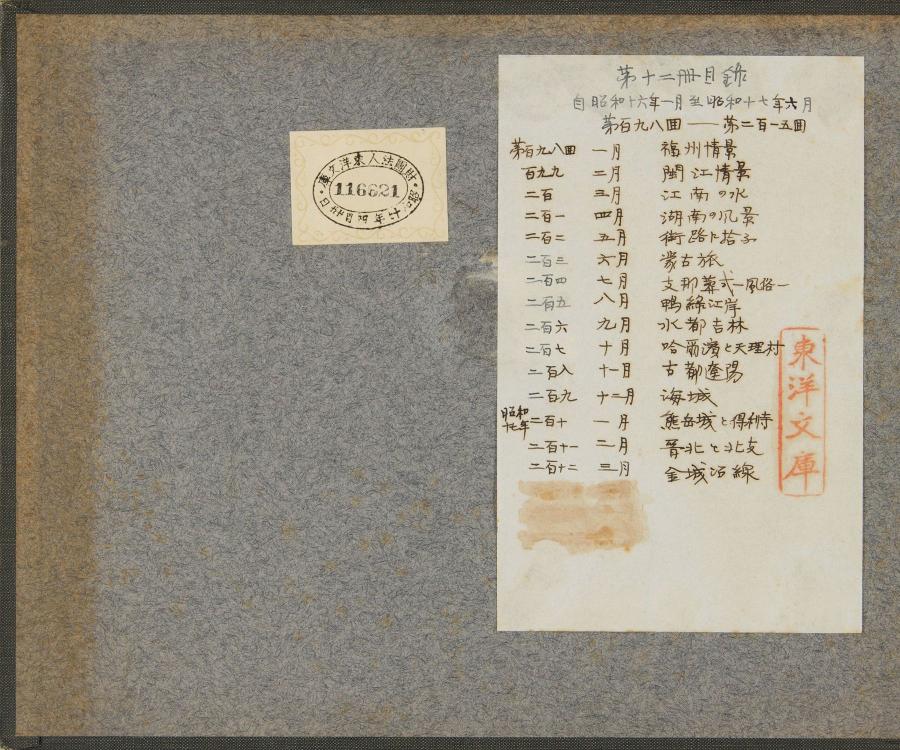 第十二冊目録
自昭和十六年一月至昭和十七年六月
第百九八回——第二百一五回
第百九八回 一月 福州情景
百九九 二月 閩江情景
二百 三月 江南の水
二百一 四月 湖南の風景
二百二 五月 街路に拾ふ
二百三 六月 蒙古旅
二百四 七月 支那葬式—風俗—
二百五 八月 鴨綠江岸
二百六 九月 水都吉林
二百七 十月 哈爾濱と天理村
二百八 十一月 古都遼陽
二百九 十二月 海城
昭和十七年 二百十 一月 熊岳城と得利寺
二百十一 二月 晋北と北支
二百十二 三月 金城沿線
財團法人東洋文庫
116621
東洋文庫